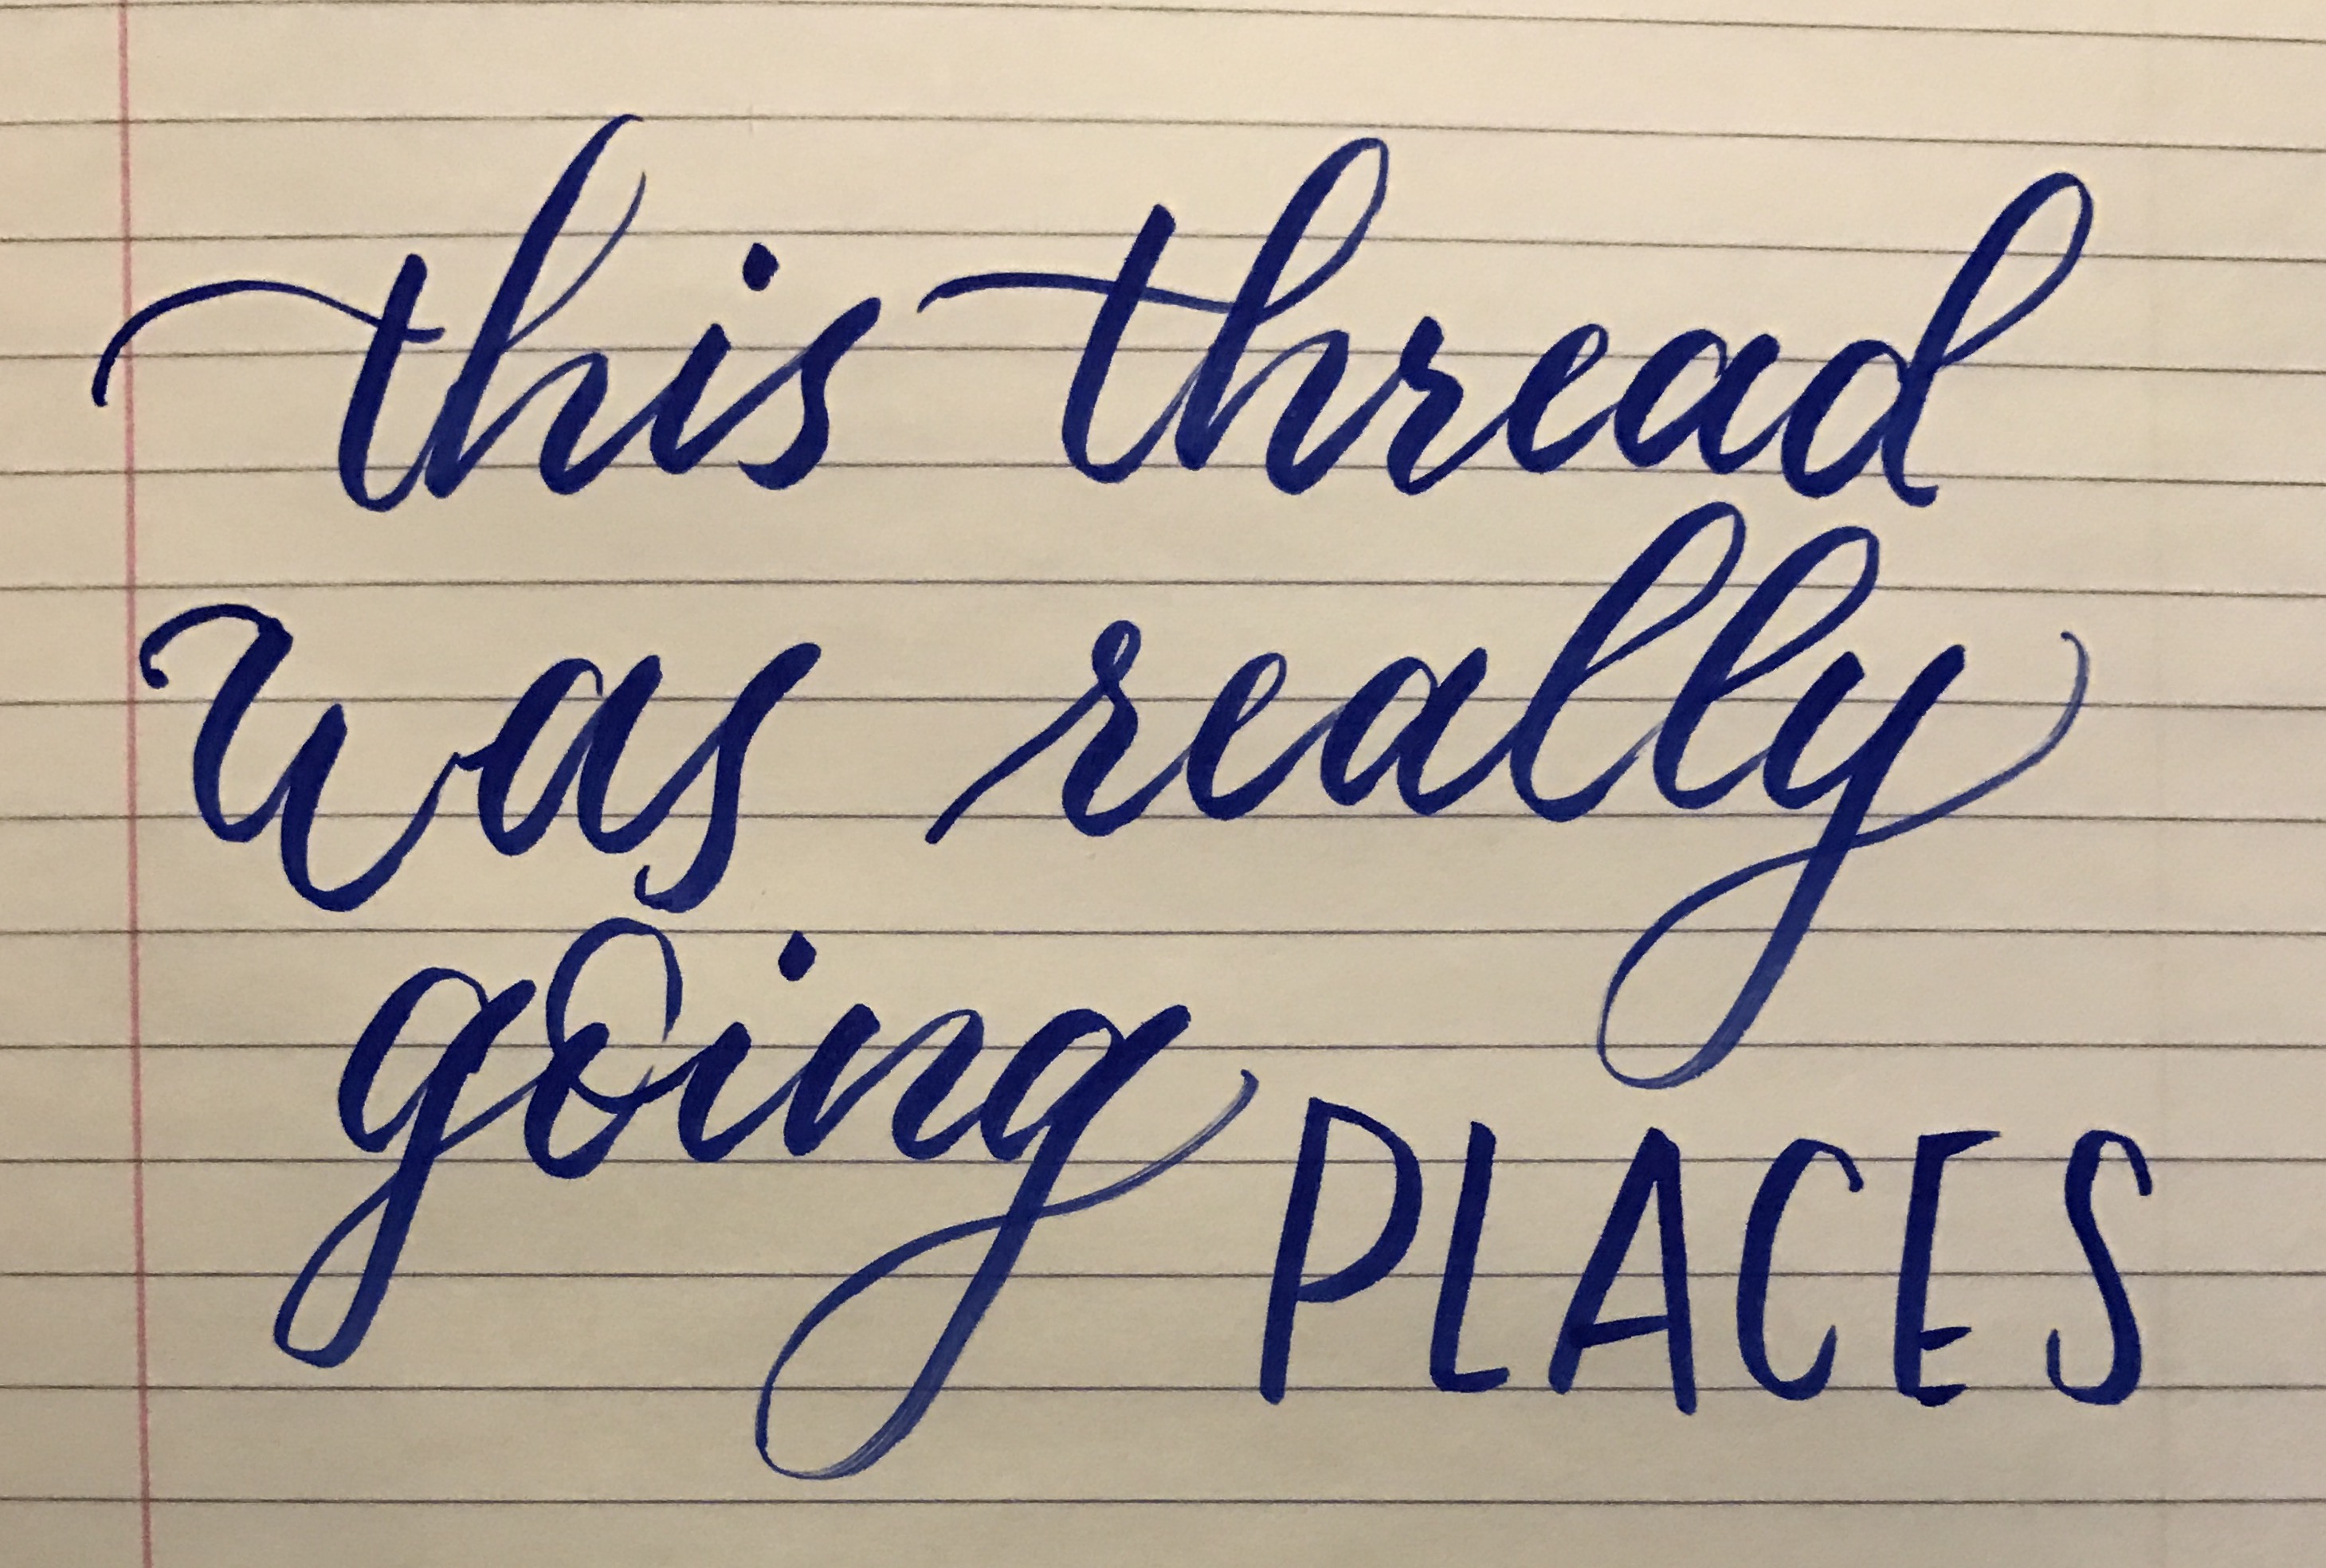 this thread
was really
going PLACES